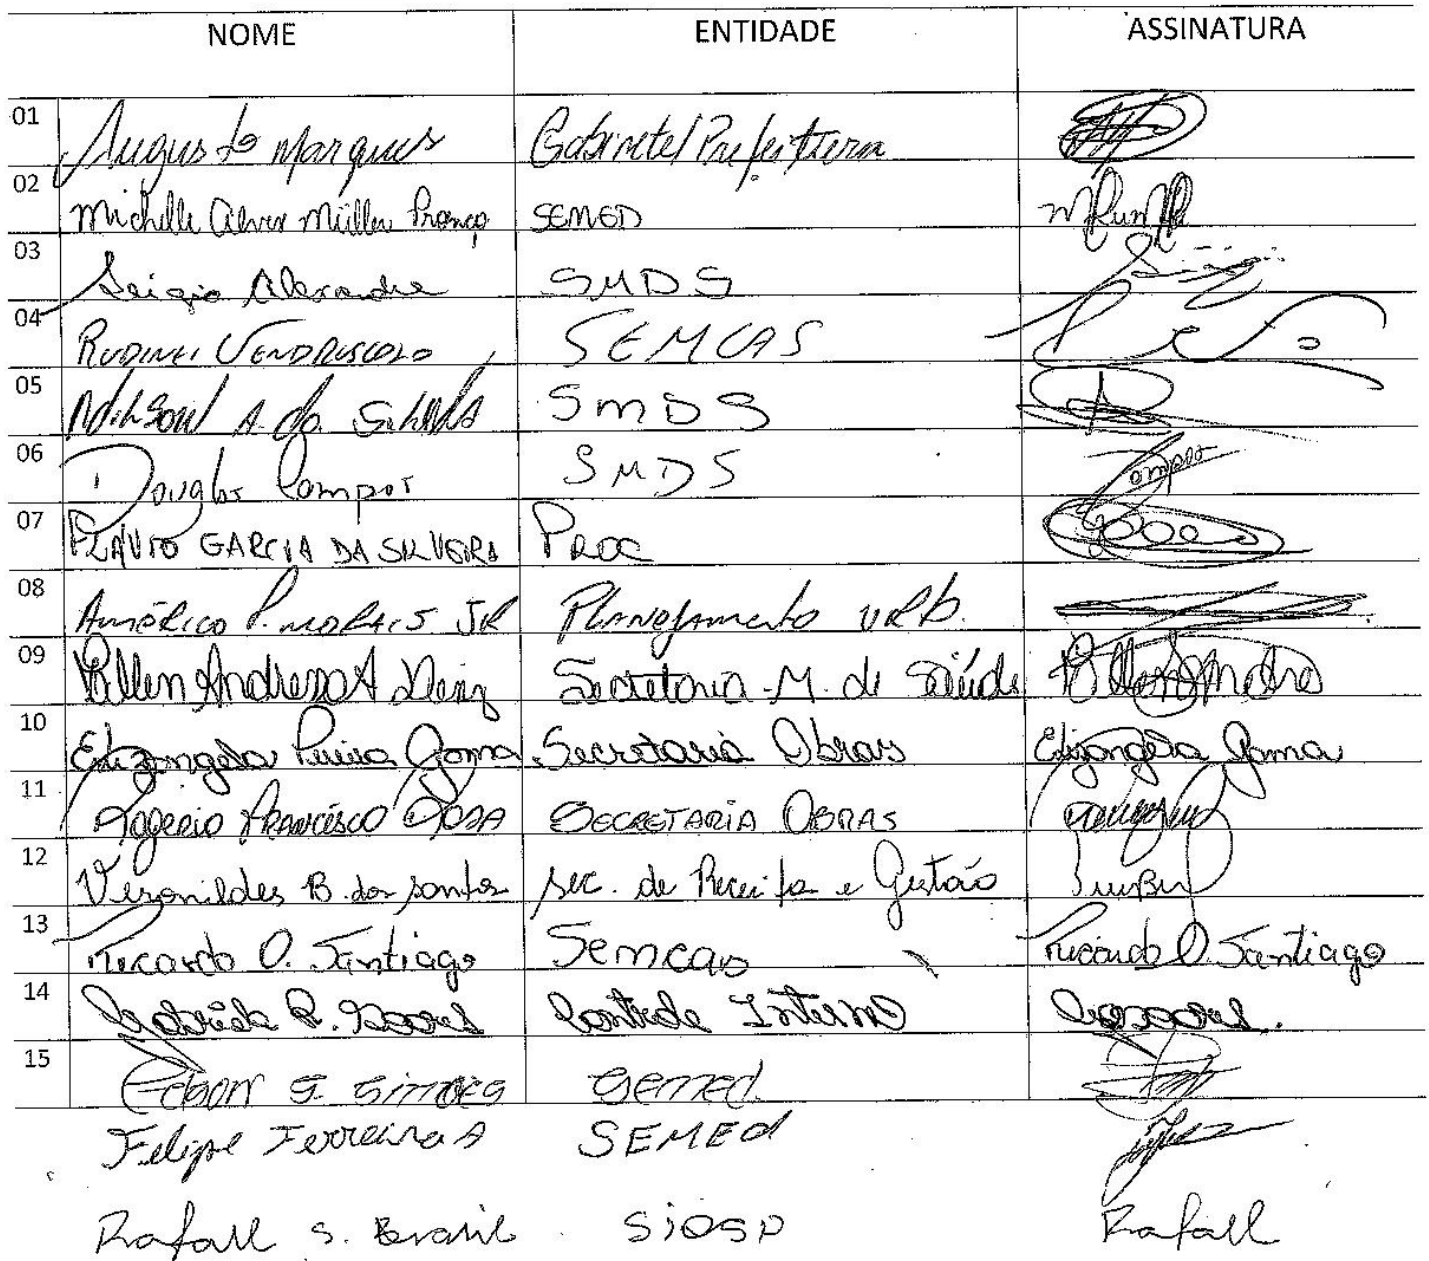 NOME ENTIDADE ASSINATURA
01 Augusto Marques Gabinete/Prefeitura
02 Michelle Alves Müller França SEMED
03 Sérgio Alexandre SMDS
04 RUDINEI VENDRUSCOLO SEMCAS
05 A. da SMDS
06 Douglas Campos SMDS Campos
07 FLÁVIO GARCIA DA SILVEIRA PROC
08 AMÉRICO P. MORAIS JR PLANEJAMENTO URB.
09 Andressa A Diniz Secretaria M. de Saúde
10 Elizangela Pereira Gama Secretaria Obras Elizangela Gama
11 ROGERIO FRANCISCO ROSA SECRETARIA OBRAS
12 Veronildes B. dos Santos Sec. de Receita e Gestão
13 Ricardo O. Santiago Semcas Ricardo O. Santiago
14 Gabriela R. Soares Controle Interno
15 Edson S. Simões Semed
Felipe Ferreira A SEMEd
Rafael S. Brasil SIOSP Rafael